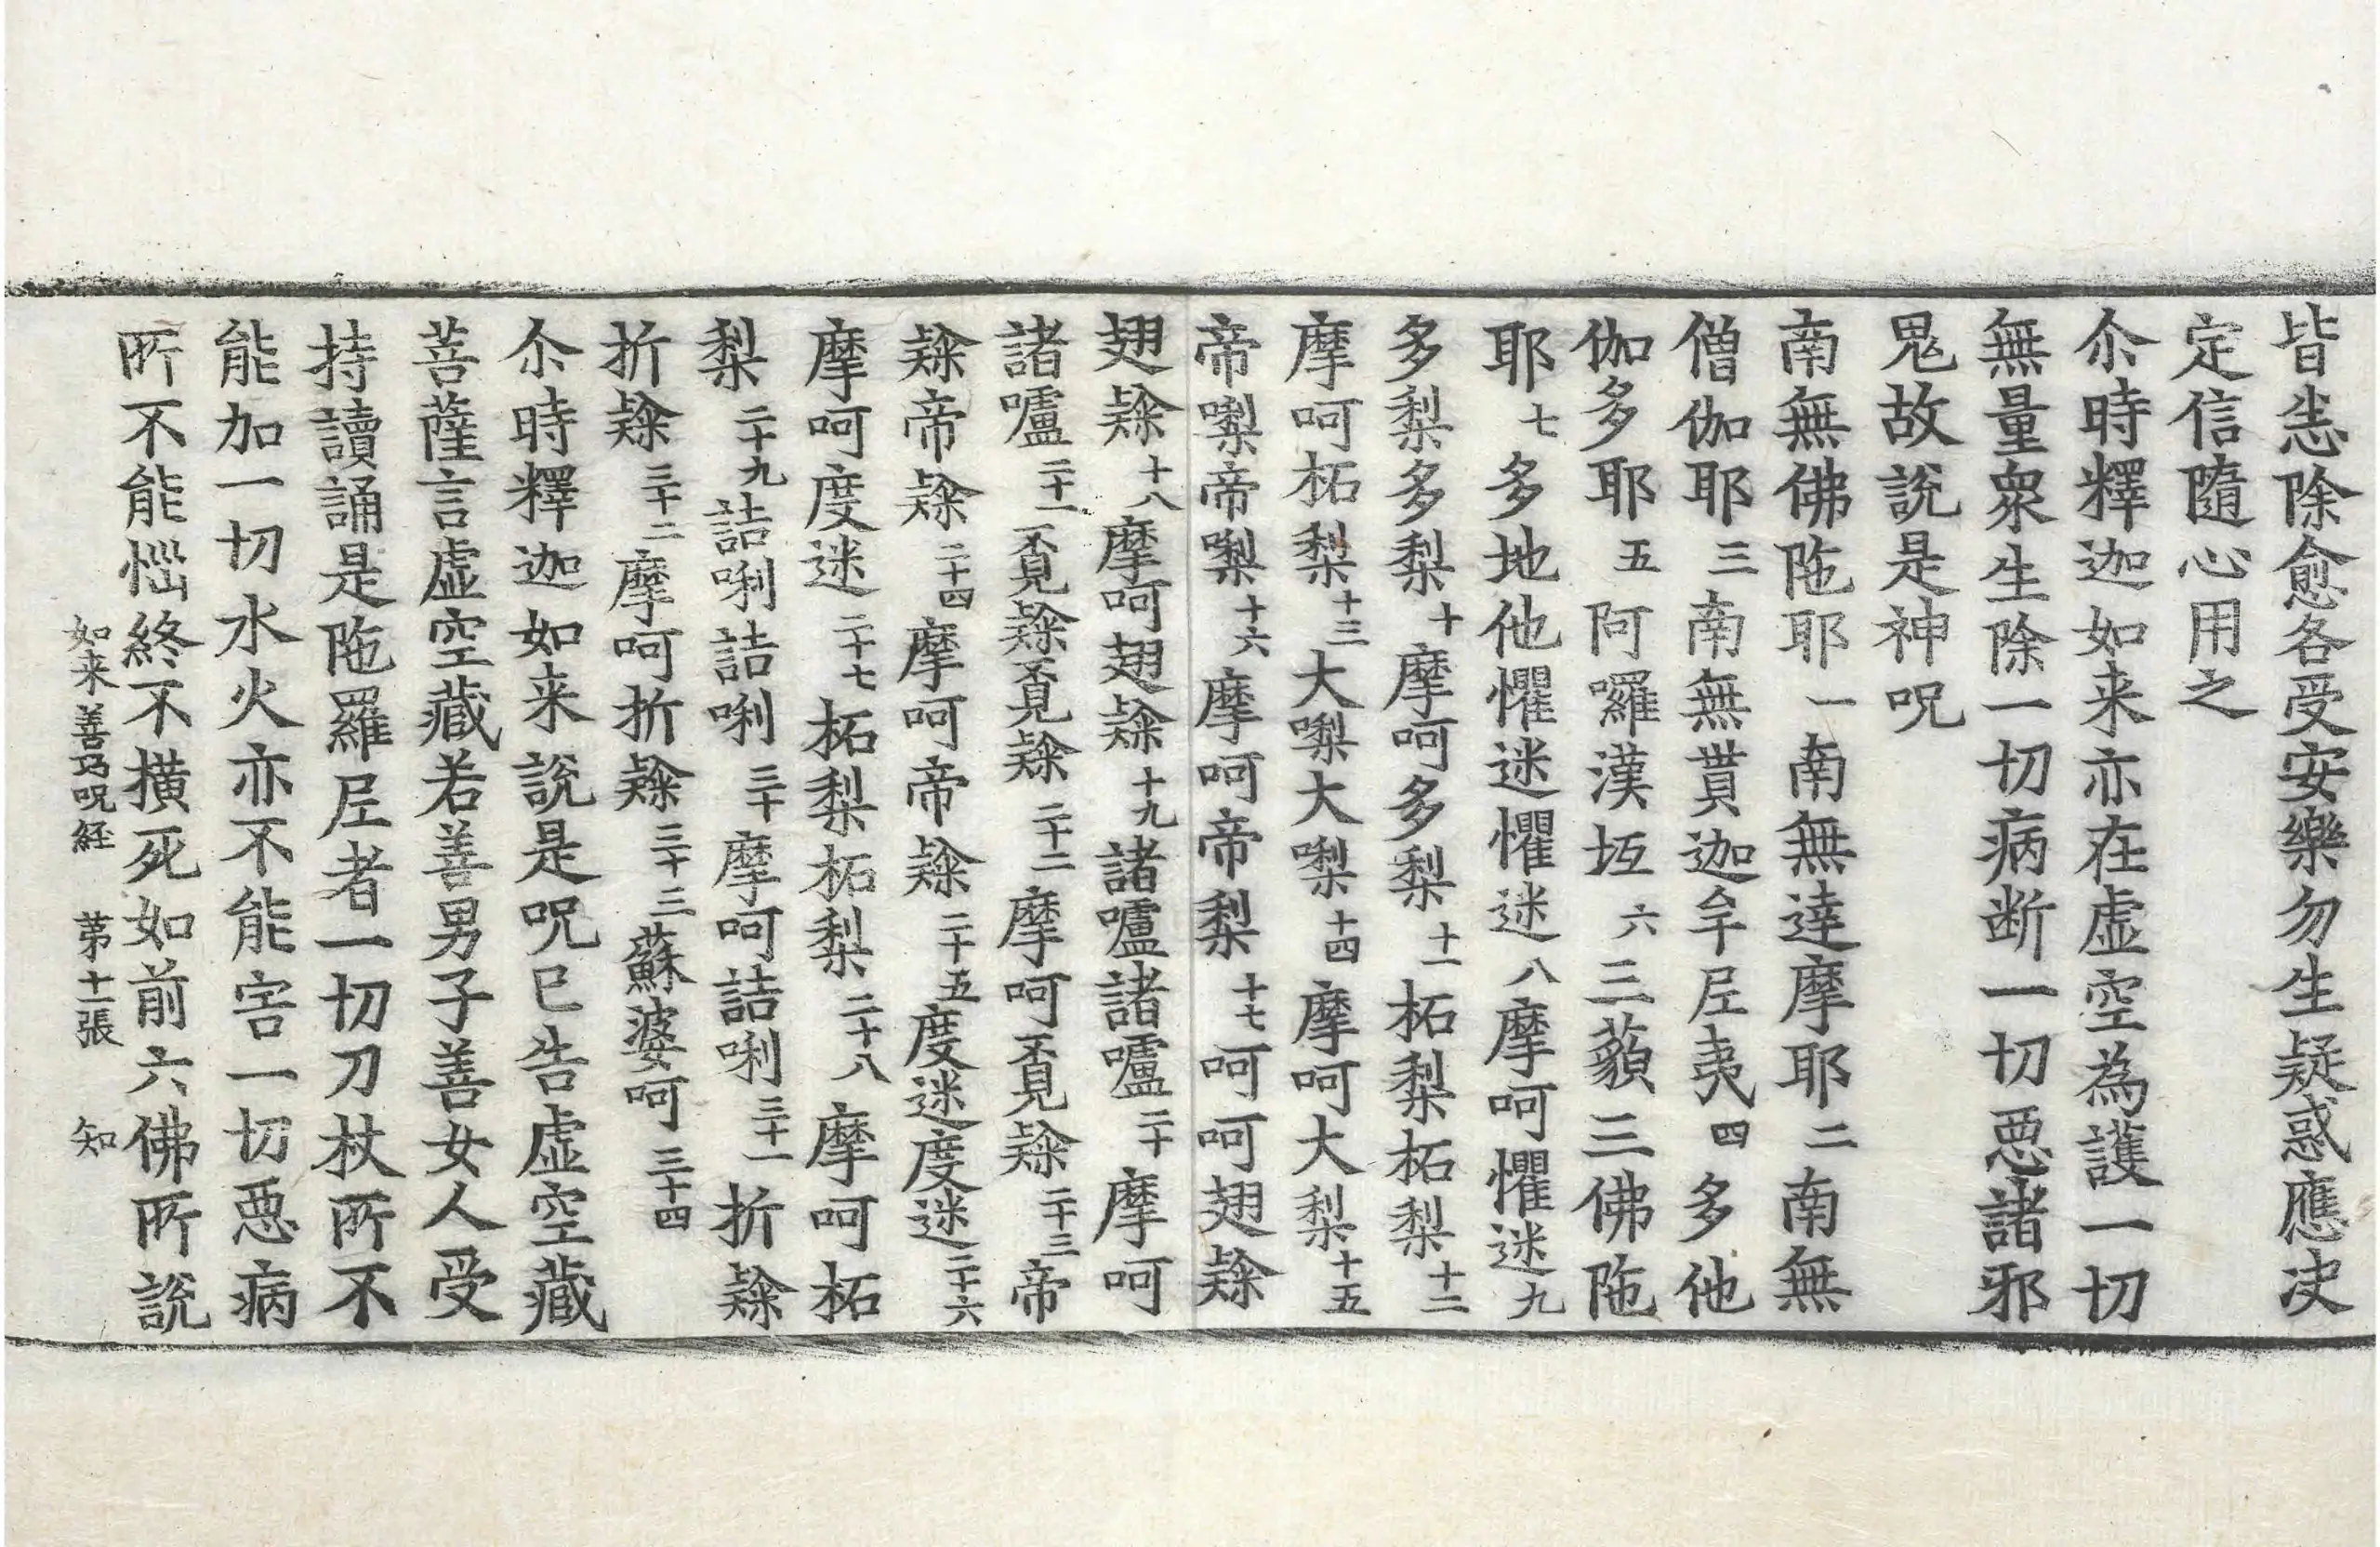 皆悉除愈各受安樂勿生疑惑應决
定信隨心用之
尒時釋迦如来亦在虛空為護一切
無量衆生除一切病断一切惡諸邪
鬼故說是神呪
南無佛陁耶一南無達摩耶二南無
僧伽耶三南無貰迦牟𡰱夷四多他
伽多耶五阿囉漢坘六三藐三佛陁
耶七多地他懼迷懼迷八摩呵懼迷九
多梨多梨十摩呵多梨十一柘梨柘梨十二
摩呵柘梨十三大㗚大㗚十四摩呵大梨十五
帝㗚帝㗚十六摩呵帝梨十七呵呵翅𨽻
翅𨽻十八摩呵翅𨽻十九諸嚧諸嚧二十摩呵
諸嚧二十一覔𨽻覔𨽻二十二摩呵覔𨽻二十三帝
𨽻帝𨽻二十四摩呵帝𨽻二十五度迷度迷二十六
摩呵度迷二十七柘梨柘梨二十八摩呵柘
梨二十九詰唎詰唎三十摩呵詰唎三十一折𨽻
折𨽻三十二摩呵折𨽻三十三蘇婆呵三十四
尒時釋迦如来說是呪已告虛空藏
菩薩言虛空藏若善男子善女人受
持讀誦是陁羅𡰱者一切刀杖所不
能加一切水火亦不能害一切惡病
所不能惱終不橫死如前六佛所說
如来善巧呪経 苐十一張 知